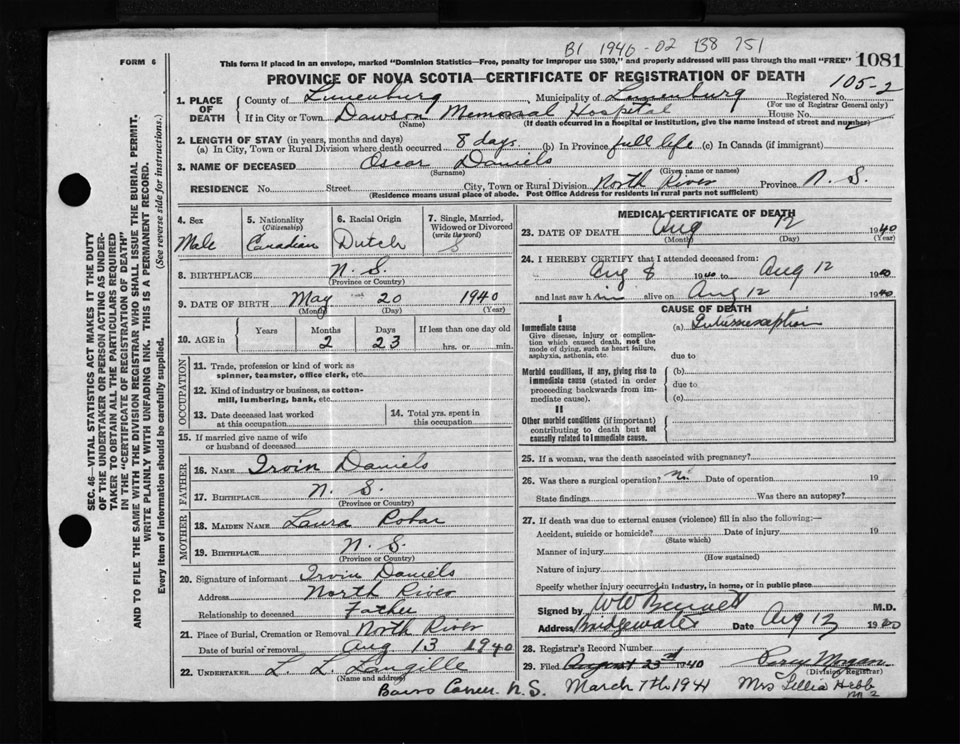 B1 1940-02 138 751
FORM 6
This form if placed in an envelope, marked "Dominion Statistics—Free, penalty for improper use $300," and properly addressed will pass through the mail "FREE" 1081
PROVINCE OF NOVA SCOTIA—CERTIFICATE OF REGISTRATION OF DEATH
105-2
1. PLACE OF DEATH
County of Lunenburg Municipality of Lunenburg Registered No.
(For use of Registrar General only)
If in City or Town Dawson Memorial Hospital House No.
(Name) (If death occurred in a hospital or institution, give the name instead of street and number)
2. LENGTH OF STAY (in years, months and days)
(a) In City, Town or Rural Division where death occurred 8 days (b) In Province full life (c) In Canada (if immigrant)
3. NAME OF DECEASED Oscar Daniels
(Surname) (Given name or names)
RESIDENCE No. Street City, Town or Rural Division North River Province N. S.
(Residence means usual place of abode. Post Office Address for residents in rural parts not sufficient)
4. Sex
Male
5. Nationality
(Citizenship)
Canadian
6. Racial Origin
Dutch
7. Single, Married, Widowed or Divorced
(write the word)
S
8. BIRTHPLACE N. S.
(Province or Country)
9. DATE OF BIRTH May 20 1940
(Month) (Day) (Year)
10. AGE in
Years Months Days If less than one day old
2 23 hrs. or min.
OCCUPATION
11. Trade, profession or kind of work as
spinner, teamster, office clerk, etc.
12. Kind of industry or business, as cotton-
mill, lumbering, bank, etc.
13. Date deceased last worked
at this occupation
14. Total yrs. spent in
this occupation
15. If married give name of wife
or husband of deceased
FATHER
16. NAME Irvin Daniels
17. BIRTHPLACE N. S.
(Province or Country)
MOTHER
18. MAIDEN NAME Laura Robar
19. BIRTHPLACE N. S.
(Province or Country)
20. Signature of informant Irvin Daniels
Address North River
Relationship to deceased Father
21. Place of Burial, Cremation or Removal North River
Date of burial or removal Aug 13 1940
22. UNDERTAKER L. L. Langille
(Name and address)
N.S.
MEDICAL CERTIFICATE OF DEATH
23. DATE OF DEATH Aug 12 1940
(Month) (Day) (Year)
24. I HEREBY CERTIFY that I attended deceased from:
Aug 8 1940 to Aug 12 1940
and last saw him alive on Aug 12 1940
CAUSE OF DEATH
I
Immediate cause
Give disease, injury or complica-
tion which caused death, not the
mode of dying, such as heart failure,
asphyxia, asthenia, etc.
(a) Intussusception
due to
Morbid conditions, if any, giving rise to
immediate cause (stated in order
proceeding backwards from im-
mediate cause).
(b)
due to
(c)
II
Other morbid conditions (if important)
contributing to death but not
causally related to immediate cause.
25. If a woman, was the death associated with pregnancy?
26. Was there a surgical operation? no. Date of operation 19
State findings Was there an autopsy?
27. If death was due to external causes (violence) fill in also the following:—
Accident, suicide or homicide? Date of injury 19
(State which)
Manner of injury
(How sustained)
Nature of injury
Specify whether injury occurred in industry, in home, or in public place
Signed by M.D.
Address Bridgewater Date Aug 12 1940
28. Registrar's Record Number
29. Filed August 23rd 1940 Percy Morgan
(Division Registrar)
March 7th 1941 Mrs Lillia Hebb
SEC. 46—VITAL STATISTICS ACT MAKES IT THE DUTY
OF THE UNDERTAKER OR PERSON ACTING AS UNDER-
TAKER TO OBTAIN ALL THE PARTICULARS REQUIRED
IN THE "CERTIFICATE OF REGISTRATION OF DEATH"
AND TO FILE THE SAME WITH THE DIVISION REGISTRAR WHO SHALL ISSUE THE BURIAL PERMIT.
WRITE PLAINLY WITH UNFADING INK. THIS IS A PERMANENT RECORD.
Every item of information should be carefully supplied. (See reverse side for instructions.)